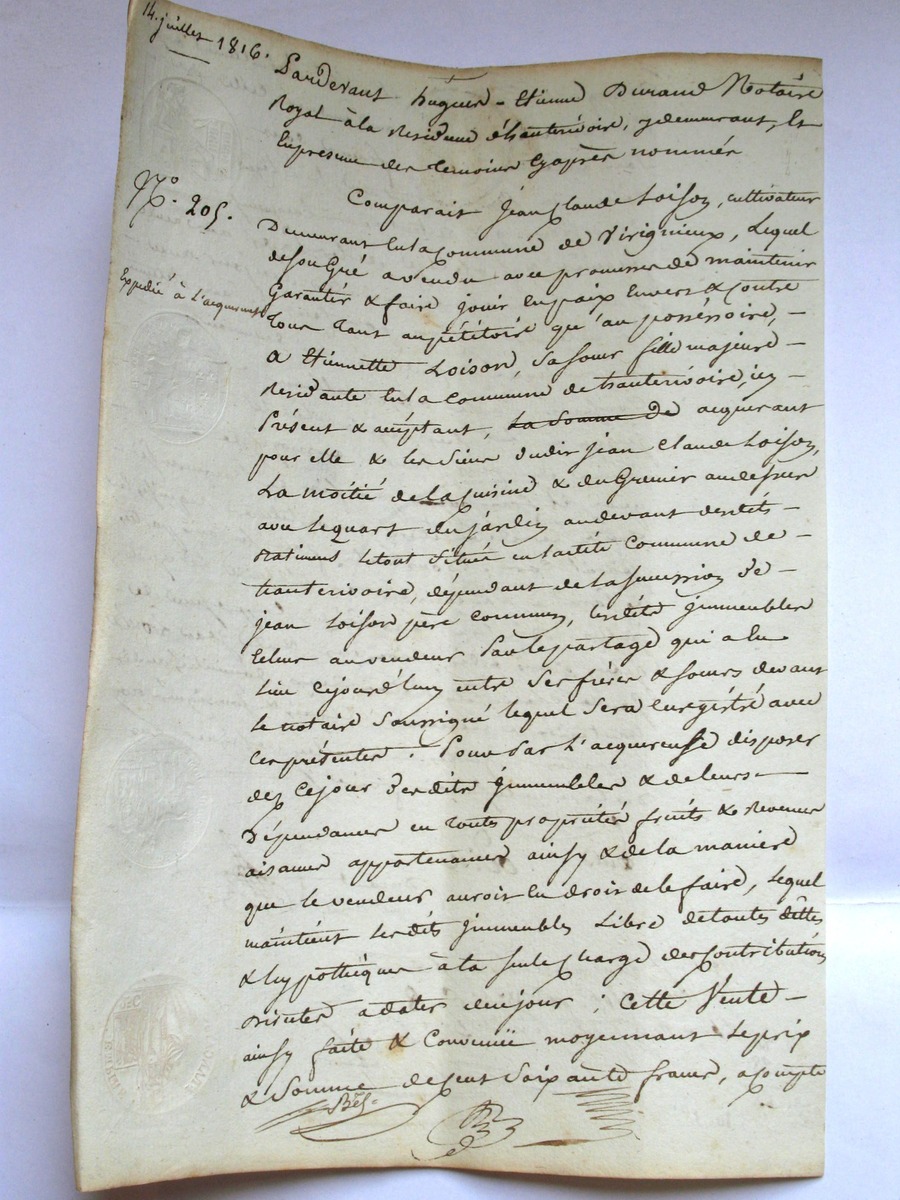 14. juillet 1816.
Pardevant hugues - Etienne Durand Notaire
Royal à la Residence d'hauterivoire, y demeurant, Et
En presence des temoins cy après nommés
N.o 205.
Comparait jean Claude Loison, cultivateur
Demeurant en la Commune de Virignieux, Lequel
de son Gré a vendu avec promesse de maintenir
Expedié à l'acquereur
Garantir & faire jouir en paix Envers & Contre
Tous tant au pétitoire qu'au posséssoire, -
a Etiennette Loison, sa sœur fille majeure -
Residante en la Commune de hauterivoire, icy -
Présent & acceptant, La Somme De acquerant
pour elle & les siens dudit jean Claude Loison,
La moitié de la Cuisine & du Grenier au dessus
avec le quart du jardin au devant desdits -
Batimens le tout situé en la dite Commune de -
hauterivoire, dépendant de la succession De -
jean Loison père commun, lesdits jmmeubles
Echus au vendeur par le partage qui a Eu
Lieu cejourd'huy entre ses frères & sœurs devant
Le notaire soussigné lequel sera Enregistré avec
Ces présentes. Pour par l'acquereuse disposer
dez Cejour desdits jmmeubles & de leurs
Dépendances en toutes propriétés fruits & revenus
aisances appartenances ainsy & de la maniere
que le vendeur auroit Eu droit de le faire, Lequel
maintient les dits jmmeubles Libre de toutes dêttes
& hypothèques à la seule charge des Contributions
Directes a dater de ce jour ; Cette Vente -
ainsy faite & Convenüe moyennant Le prix
& Somme de cent soixante francs, a compte